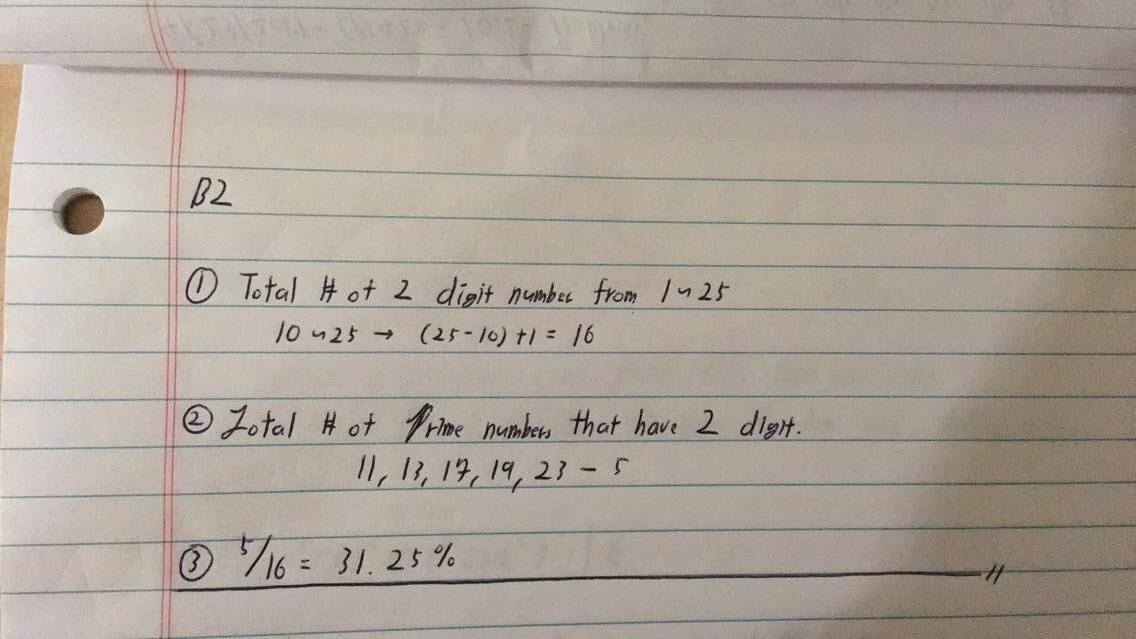 B2
① Total # of 2 digit number from 1~25
10~25 → (25-10)+1 = 16
② Total # of Prime numbers that have 2 digit.
11, 13, 17, 19, 23 - 5
③ 5/16 = 31.25%